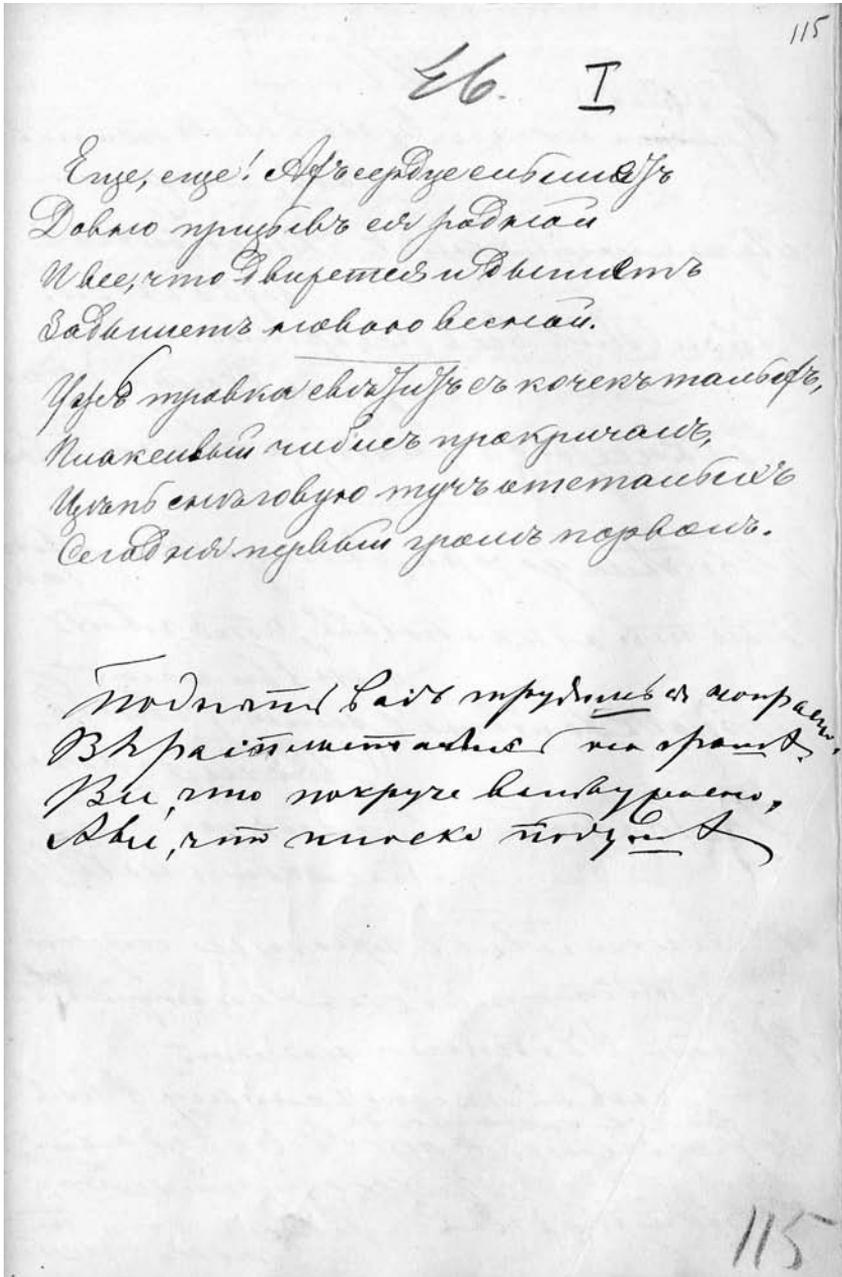 115
46. I
Еще, еще! Ахъ сердце слышитъ
Давно призывъ ея родной
И все, что движется и дышитъ
Задышитъ новою весной.
Ужъ травка свѣтитъ съ кочекъ талыхъ,
Плаксивый чибисъ прокричалъ,
Цѣпь снѣговую тучъ отсталыхъ
Сегодня первый громъ порвалъ.
Поднять васъ трудишься напрасно,
Вы распластались на грошѣ.
Все, что покруче вамъ ужасно,
А все, что плоско подушѣ
115